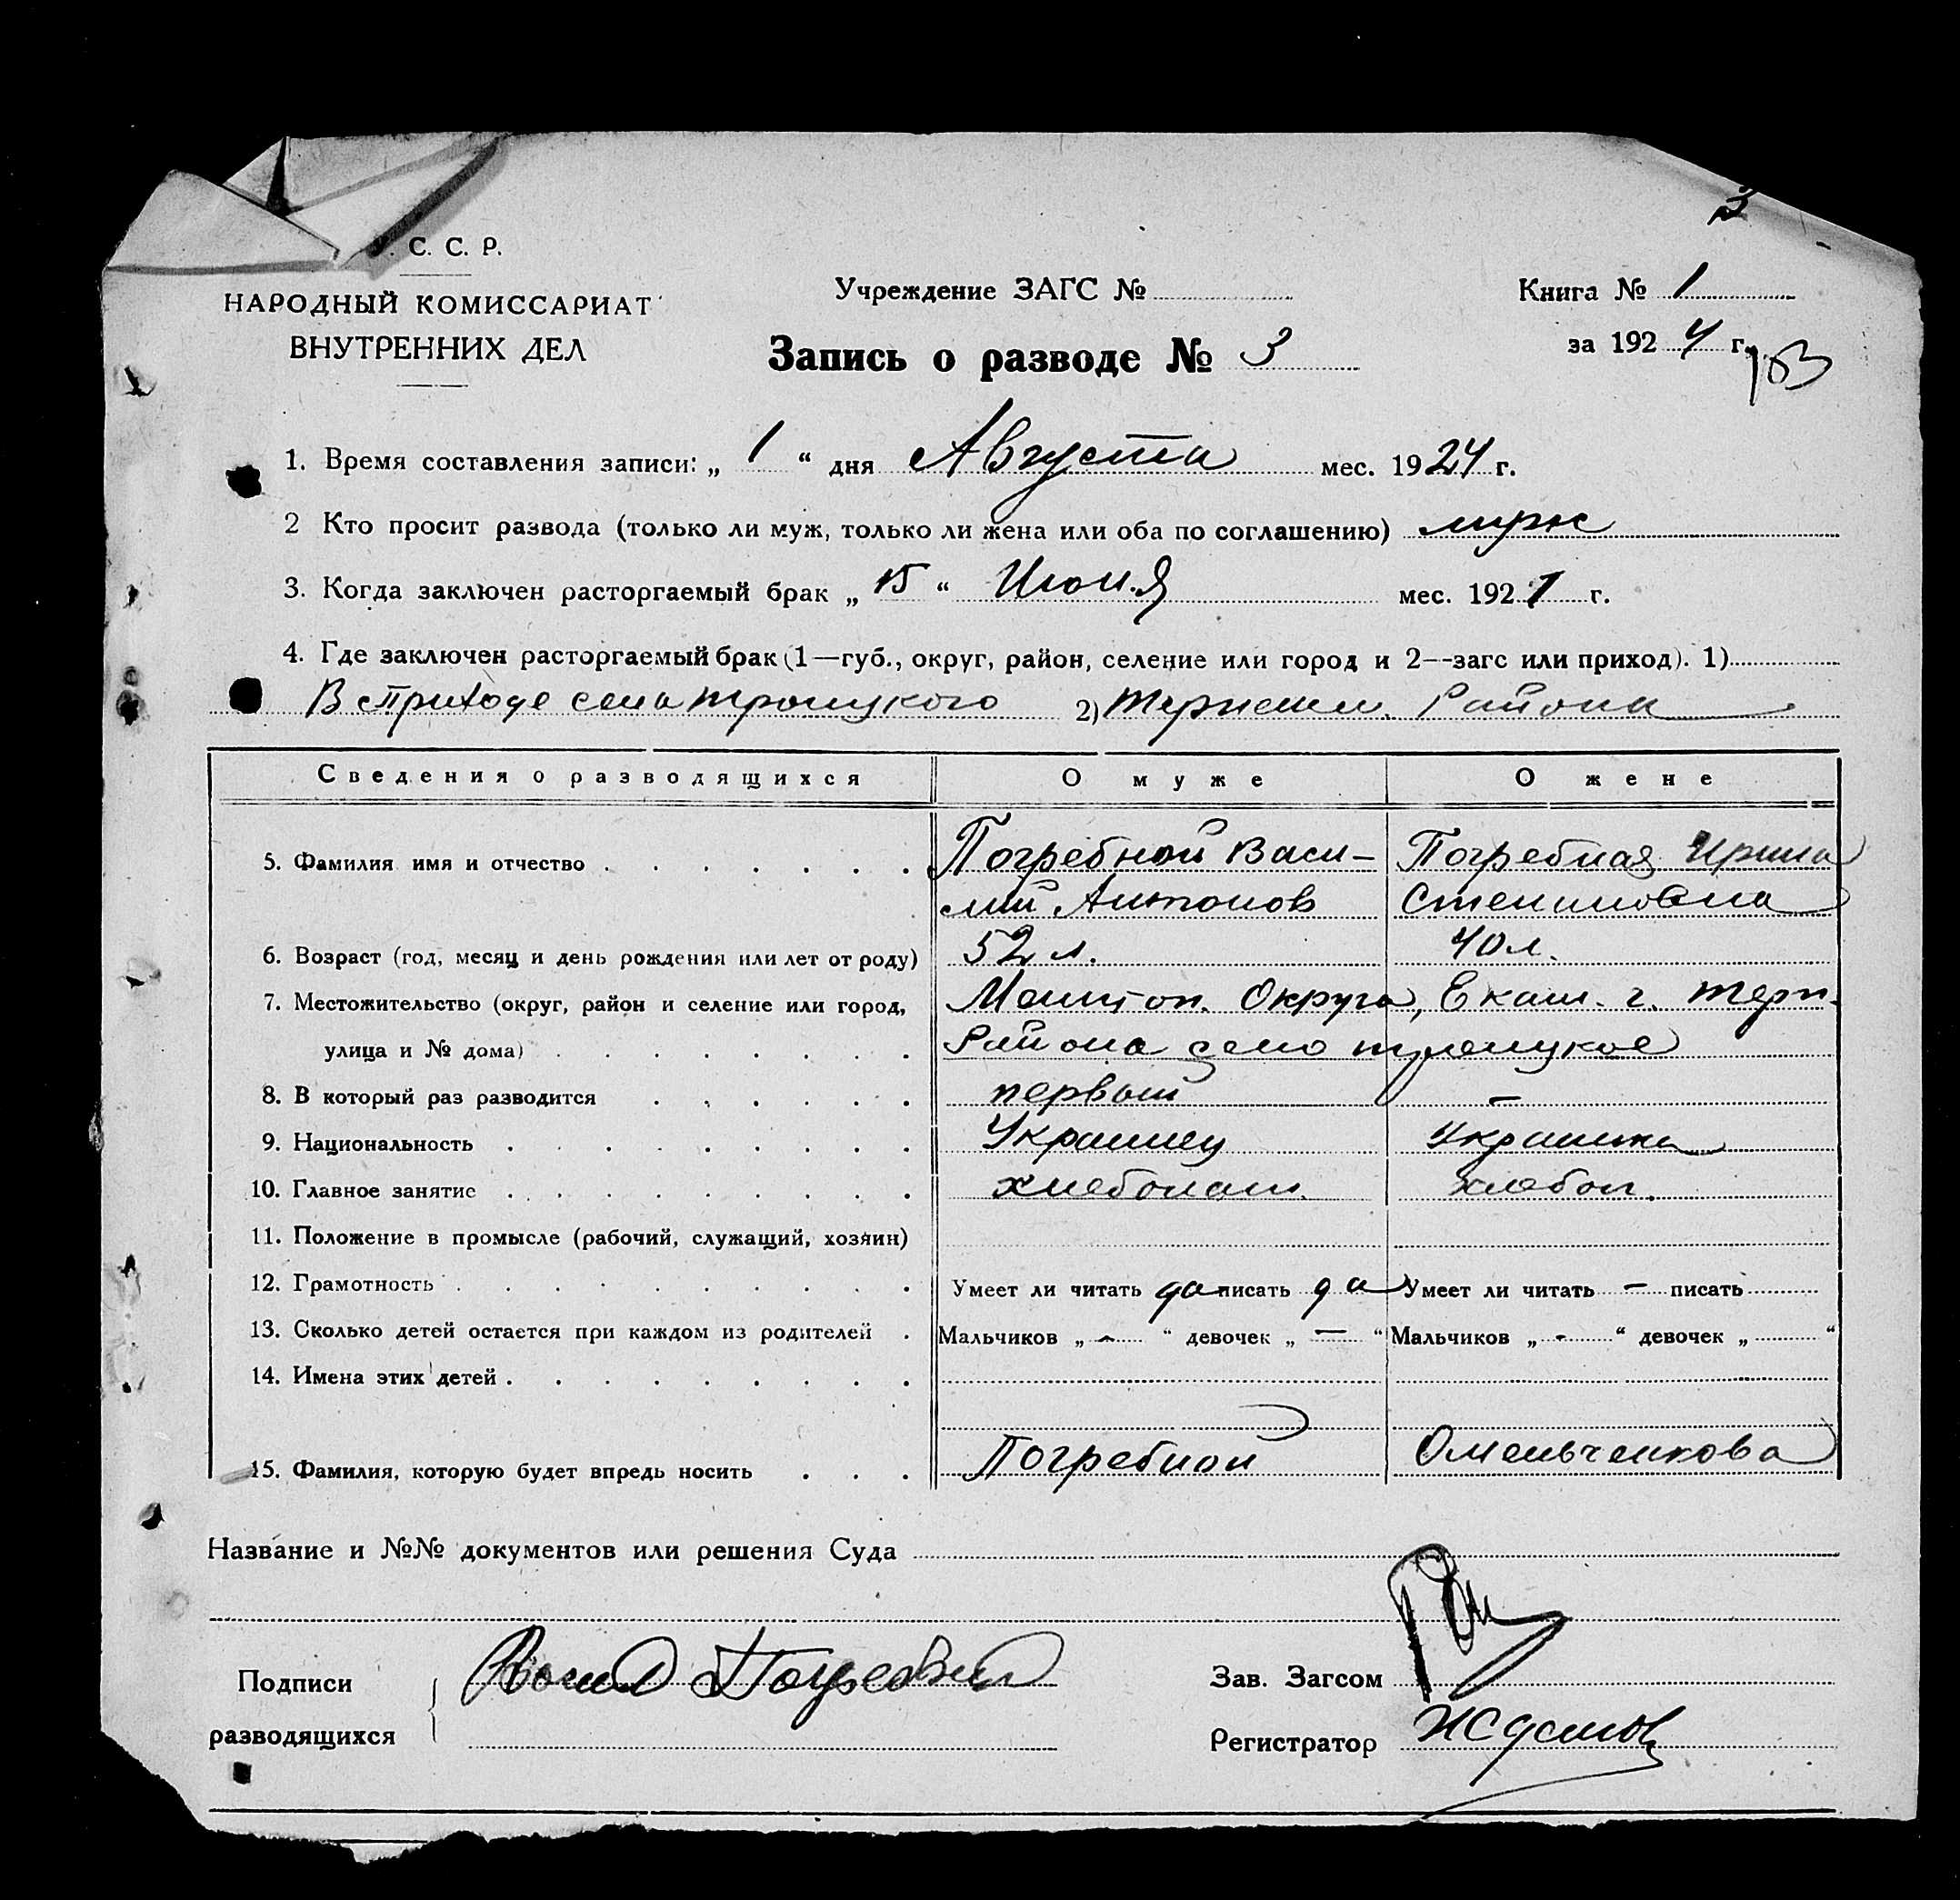 С. С. Р.
НАРОДНЫЙ КОМИССАРИАТ
ВНУТРЕННИХ ДЕЛ
Учреждение ЗАГС №
Запись о разводе № 3
Книга № 1
за 1924 г.
183
1. Время составления записи: „ 1 “ дня Августа мес. 1924 г.
2 Кто просит развода (только ли муж, только ли жена или оба по соглашению) муж
3. Когда заключен расторгаемый брак „ 15 “ Июня мес. 1921 г.
4. Где заключен расторгаемый брак (1—губ., округ, район, селение или город и 2—загс или приход). 1)
В Приходе села Троицкого 2) Района
Сведения о разводящихся О муже О жене
5. Фамилия имя и отчество Погребной Васи- Погребная Ирина
лий Антонов Степановна
6. Возраст (год, месяц и день рождения или лет от роду) 52 л. 40 л.
7. Местожительство (округ, район и селение или город, Округа, Екат. г. Терн.
улица и № дома) Района село Троицкое
8. В который раз разводится первый —
9. Национальность Украинец Украинка
10. Главное занятие хлебопаш. хлебоп.
11. Положение в промысле (рабочий, служащий, хозяин)
12. Грамотность Умеет ли читать да писать да Умеет ли читать — писать
13. Сколько детей остается при каждом из родителей Мальчиков „ - “ девочек „ — “ Мальчиков „ - “ девочек „ “
14. Имена этих детей
15. Фамилия, которую будет впредь носить Погребной Омельченкова
Название и №№ документов или решения Суда
Подписи
разводящихся
Зав. Загсом
Регистратор